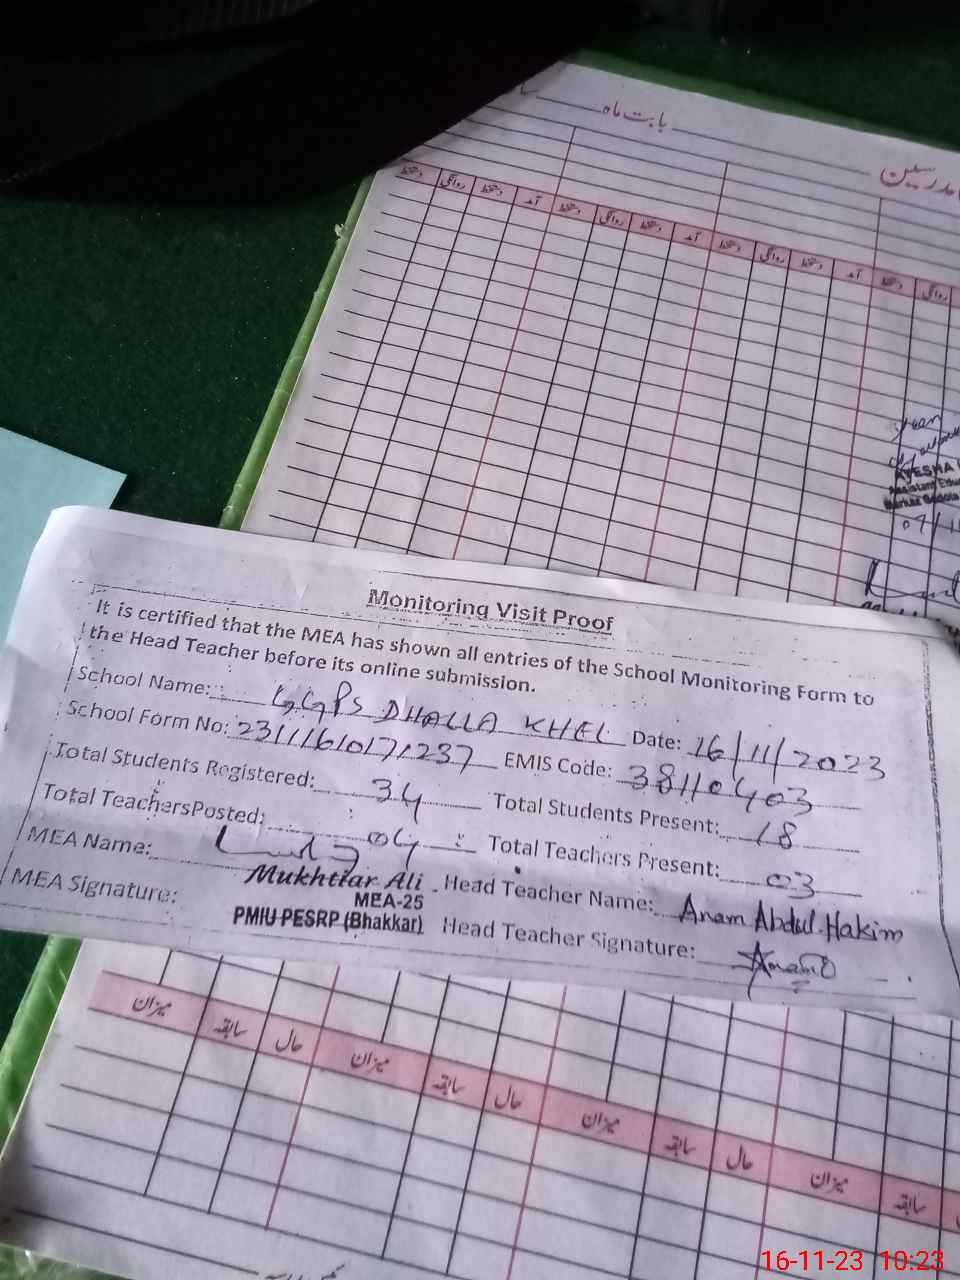 بابت ماہ
مدرسین
دستخط روانگی دستخط آمد دستخط روانگی دستخط آمد دستخط روانگی دستخط آمد دستخط روانگی
AYESHA
Monitoring Visit Proof
It is certified that the MEA has shown all entries of the School Monitoring Form to
the Head Teacher before its online submission.
School Name: GGPS DHALLA KHEL Date: 16/11/2023
School Form No: 23111610171237 EMIS Code: 38110403
Total Students Registered: 34 Total Students Present: 18
Total TeachersPosted: 04 Total Teachers Present: 03
MEA Name: Mukhtiar Ali Head Teacher Name: Anam Abdul Hakim
MEA-25
MEA Signature: PMIU-PESRP (Bhakkar) Head Teacher Signature: Anam
میزان سابقہ حال میزان سابقہ حال میزان سابقہ حال میزان سابقہ
16-11-23 10:23